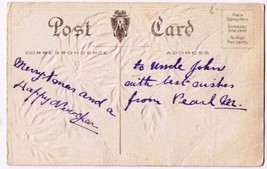 Post Card
CORRESPONDENCE
ADDRESS
Place
Stamp here
Domestic
One cent
Foreign
Two cents.
Merry Xmas and a
Happy New Year
to Uncle John
with best wishes
from Pearl M.